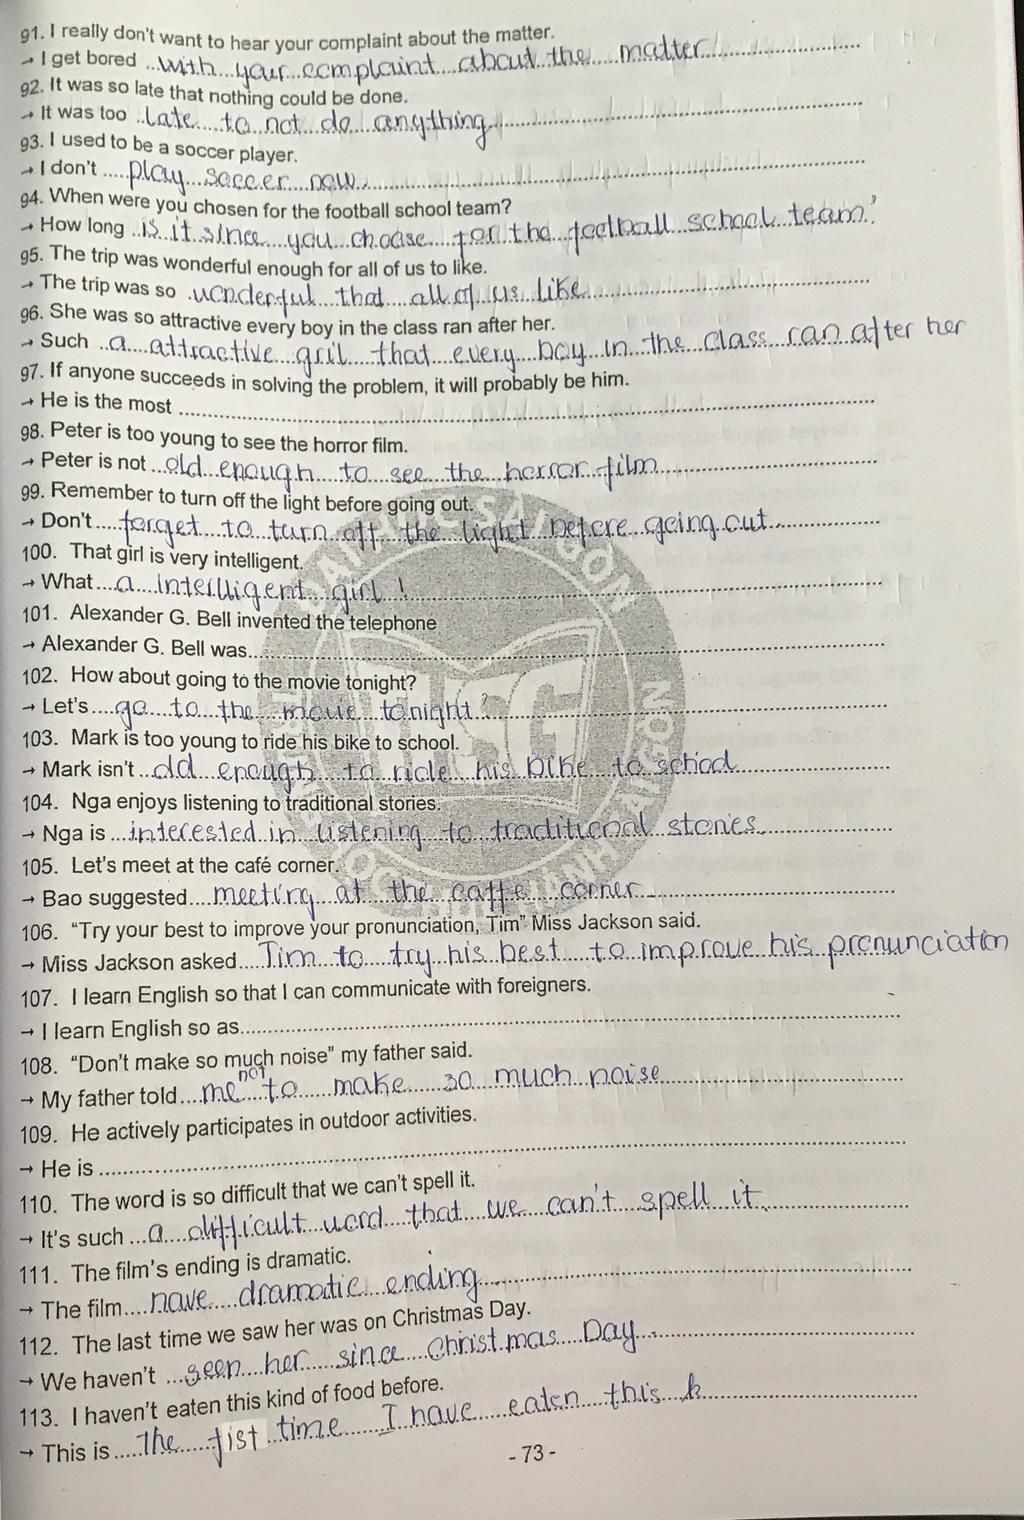 91. I really don't want to hear your complaint about the matter.
→ I get bored with your complaint about the matter
92. It was so late that nothing could be done.
→ It was too late to not do anything
93. I used to be a soccer player.
→ I don't play soccer now
94. When were you chosen for the football school team?
→ How long is it since you choose for the football school team?
95. The trip was wonderful enough for all of us to like.
→ The trip was so wonderful that all of us like
96. She was so attractive every boy in the class ran after her.
→ Such a attractive gril that every boy in the class ran after her
97. If anyone succeeds in solving the problem, it will probably be him.
→ He is the most
98. Peter is too young to see the horror film.
→ Peter is not old enough to see the horror film
99. Remember to turn off the light before going out.
→ Don't forget to turn off the light before going out
100. That girl is very intelligent.
→ What a intelligent girl !
101. Alexander G. Bell invented the telephone
→ Alexander G. Bell was
102. How about going to the movie tonight?
→ Let's go to the movie tonight
103. Mark is too young to ride his bike to school.
→ Mark isn't old enough to ride his bike to school
104. Nga enjoys listening to traditional stories.
→ Nga is interested in listening to traditional stories
105. Let's meet at the café corner.
→ Bao suggested meeting at the caffe corner
106. "Try your best to improve your pronunciation, Tim" Miss Jackson said.
→ Miss Jackson asked Tim to try his best to improve his pronunciation
107. I learn English so that I can communicate with foreigners.
→ I learn English so as
108. "Don't make so much noise" my father said.
→ My father told me not to make so much noise
109. He actively participates in outdoor activities.
→ He is
110. The word is so difficult that we can't spell it.
→ It's such a difficult word that we can't spell it
111. The film's ending is dramatic.
→ The film have dramatic ending
112. The last time we saw her was on Christmas Day.
→ We haven't seen her since Christmas Day
113. I haven't eaten this kind of food before.
→ This is the fist time I have eaten this k
- 73 -